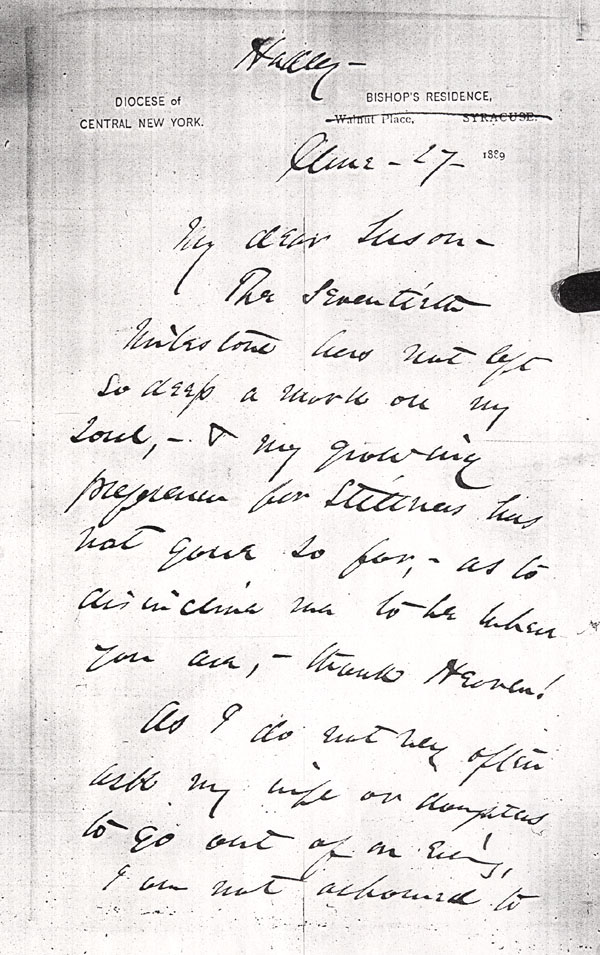 Hadley –
DIOCESE of
CENTRAL NEW YORK.
BISHOP'S RESIDENCE,
Walnut Place, SYRACUSE.
June – 27 – 1889
My dear Susan –
The Seventieth
Milestone has not left
so deep a mark on my
Soul, – & my growing
preference for Stillness has
not gone so far, – as to
disincline me to be where
you are, – thank Heaven!
As I do not very often
ask my wife or daughters
to go out of an Eve'g,
I am not ashamed to